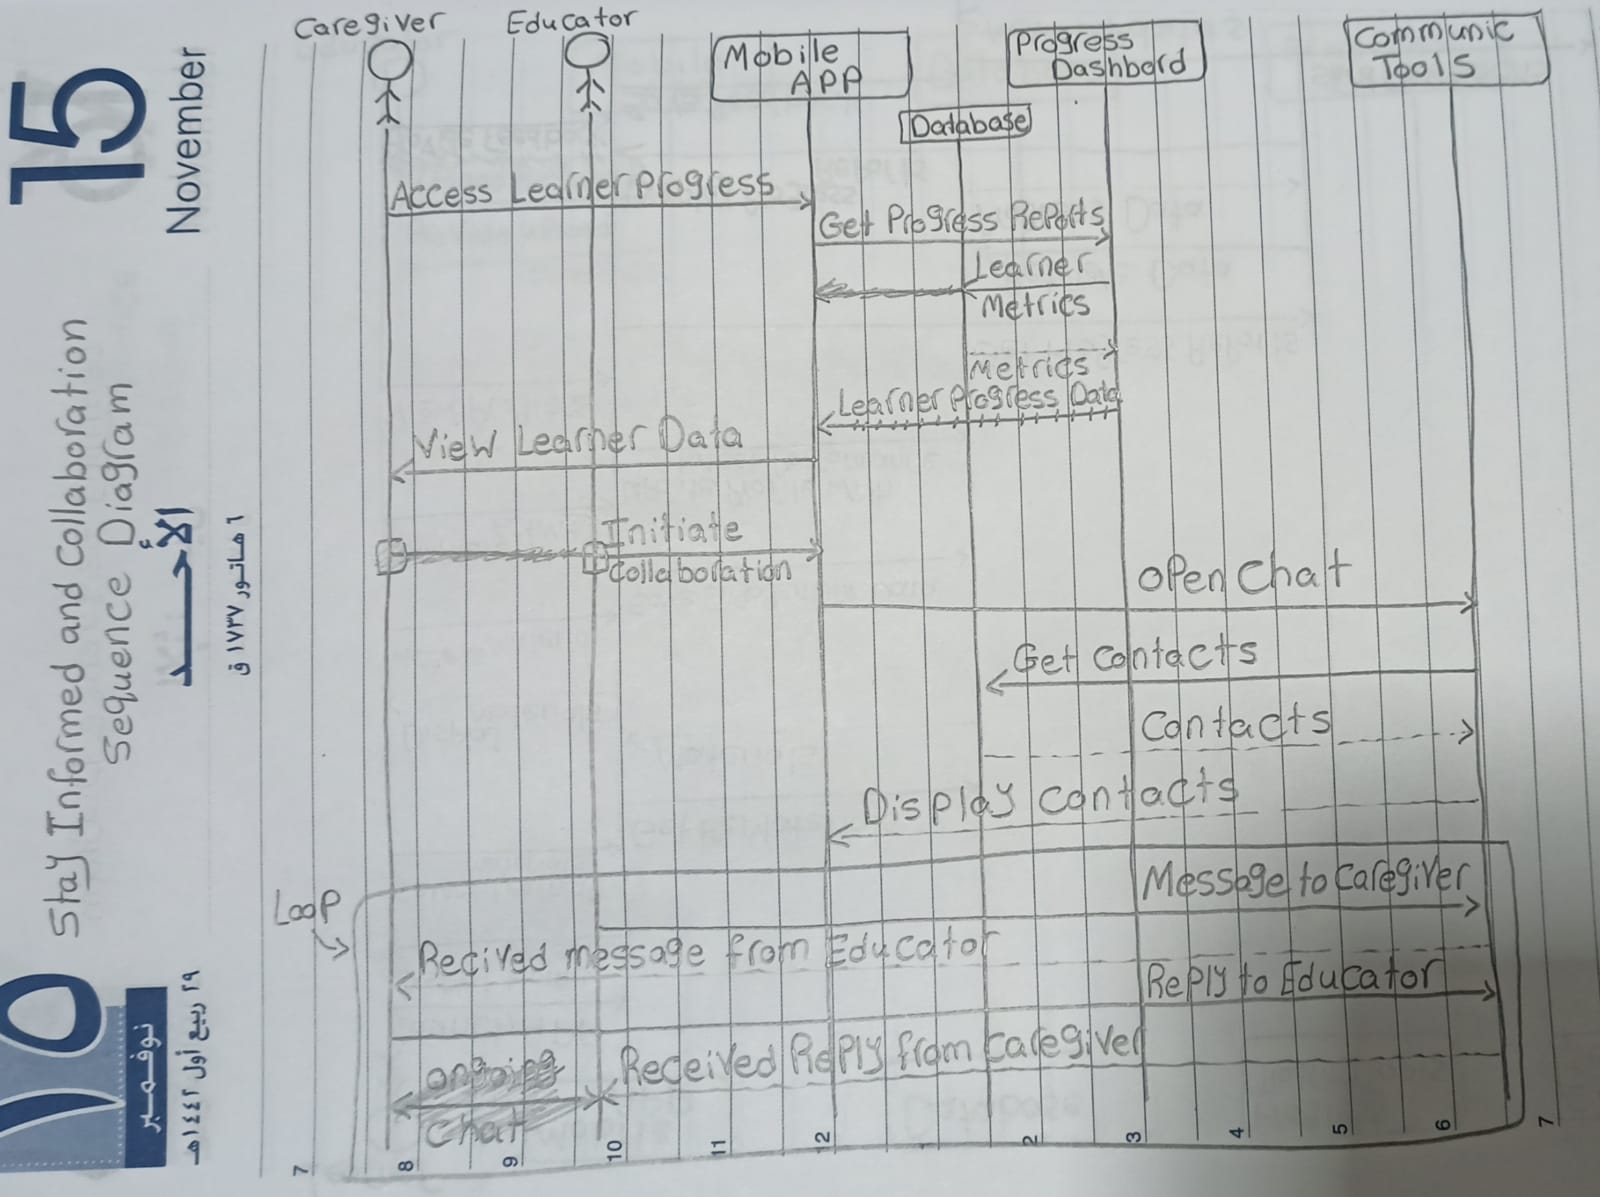 15
November
Stay Informed and Collaboration
Sequence Diagram
الأحد
٦ هاتور ١٧٣٧ ق
١٥
نوفمبر
٢٩ ربيع أول ١٤٤٢هـ
Caregiver
Educator
Mobile
APP
Database
Progress
Dashbord
Communic
Tools
Access Learner Progress
Get Progress Reports
Learner
Metrics
Metrics
Learner Progress Data
View Learner Data
Initiate
Collaboration
Open Chat
Get contacts
Contacts
Display contacts
Loop
Message to caregiver
Recived message from Educator
Reply to Educator
Received Reply from caregiver
ongoing
Chat
7
8
9
10
11
12
1
2
3
4
5
6
7